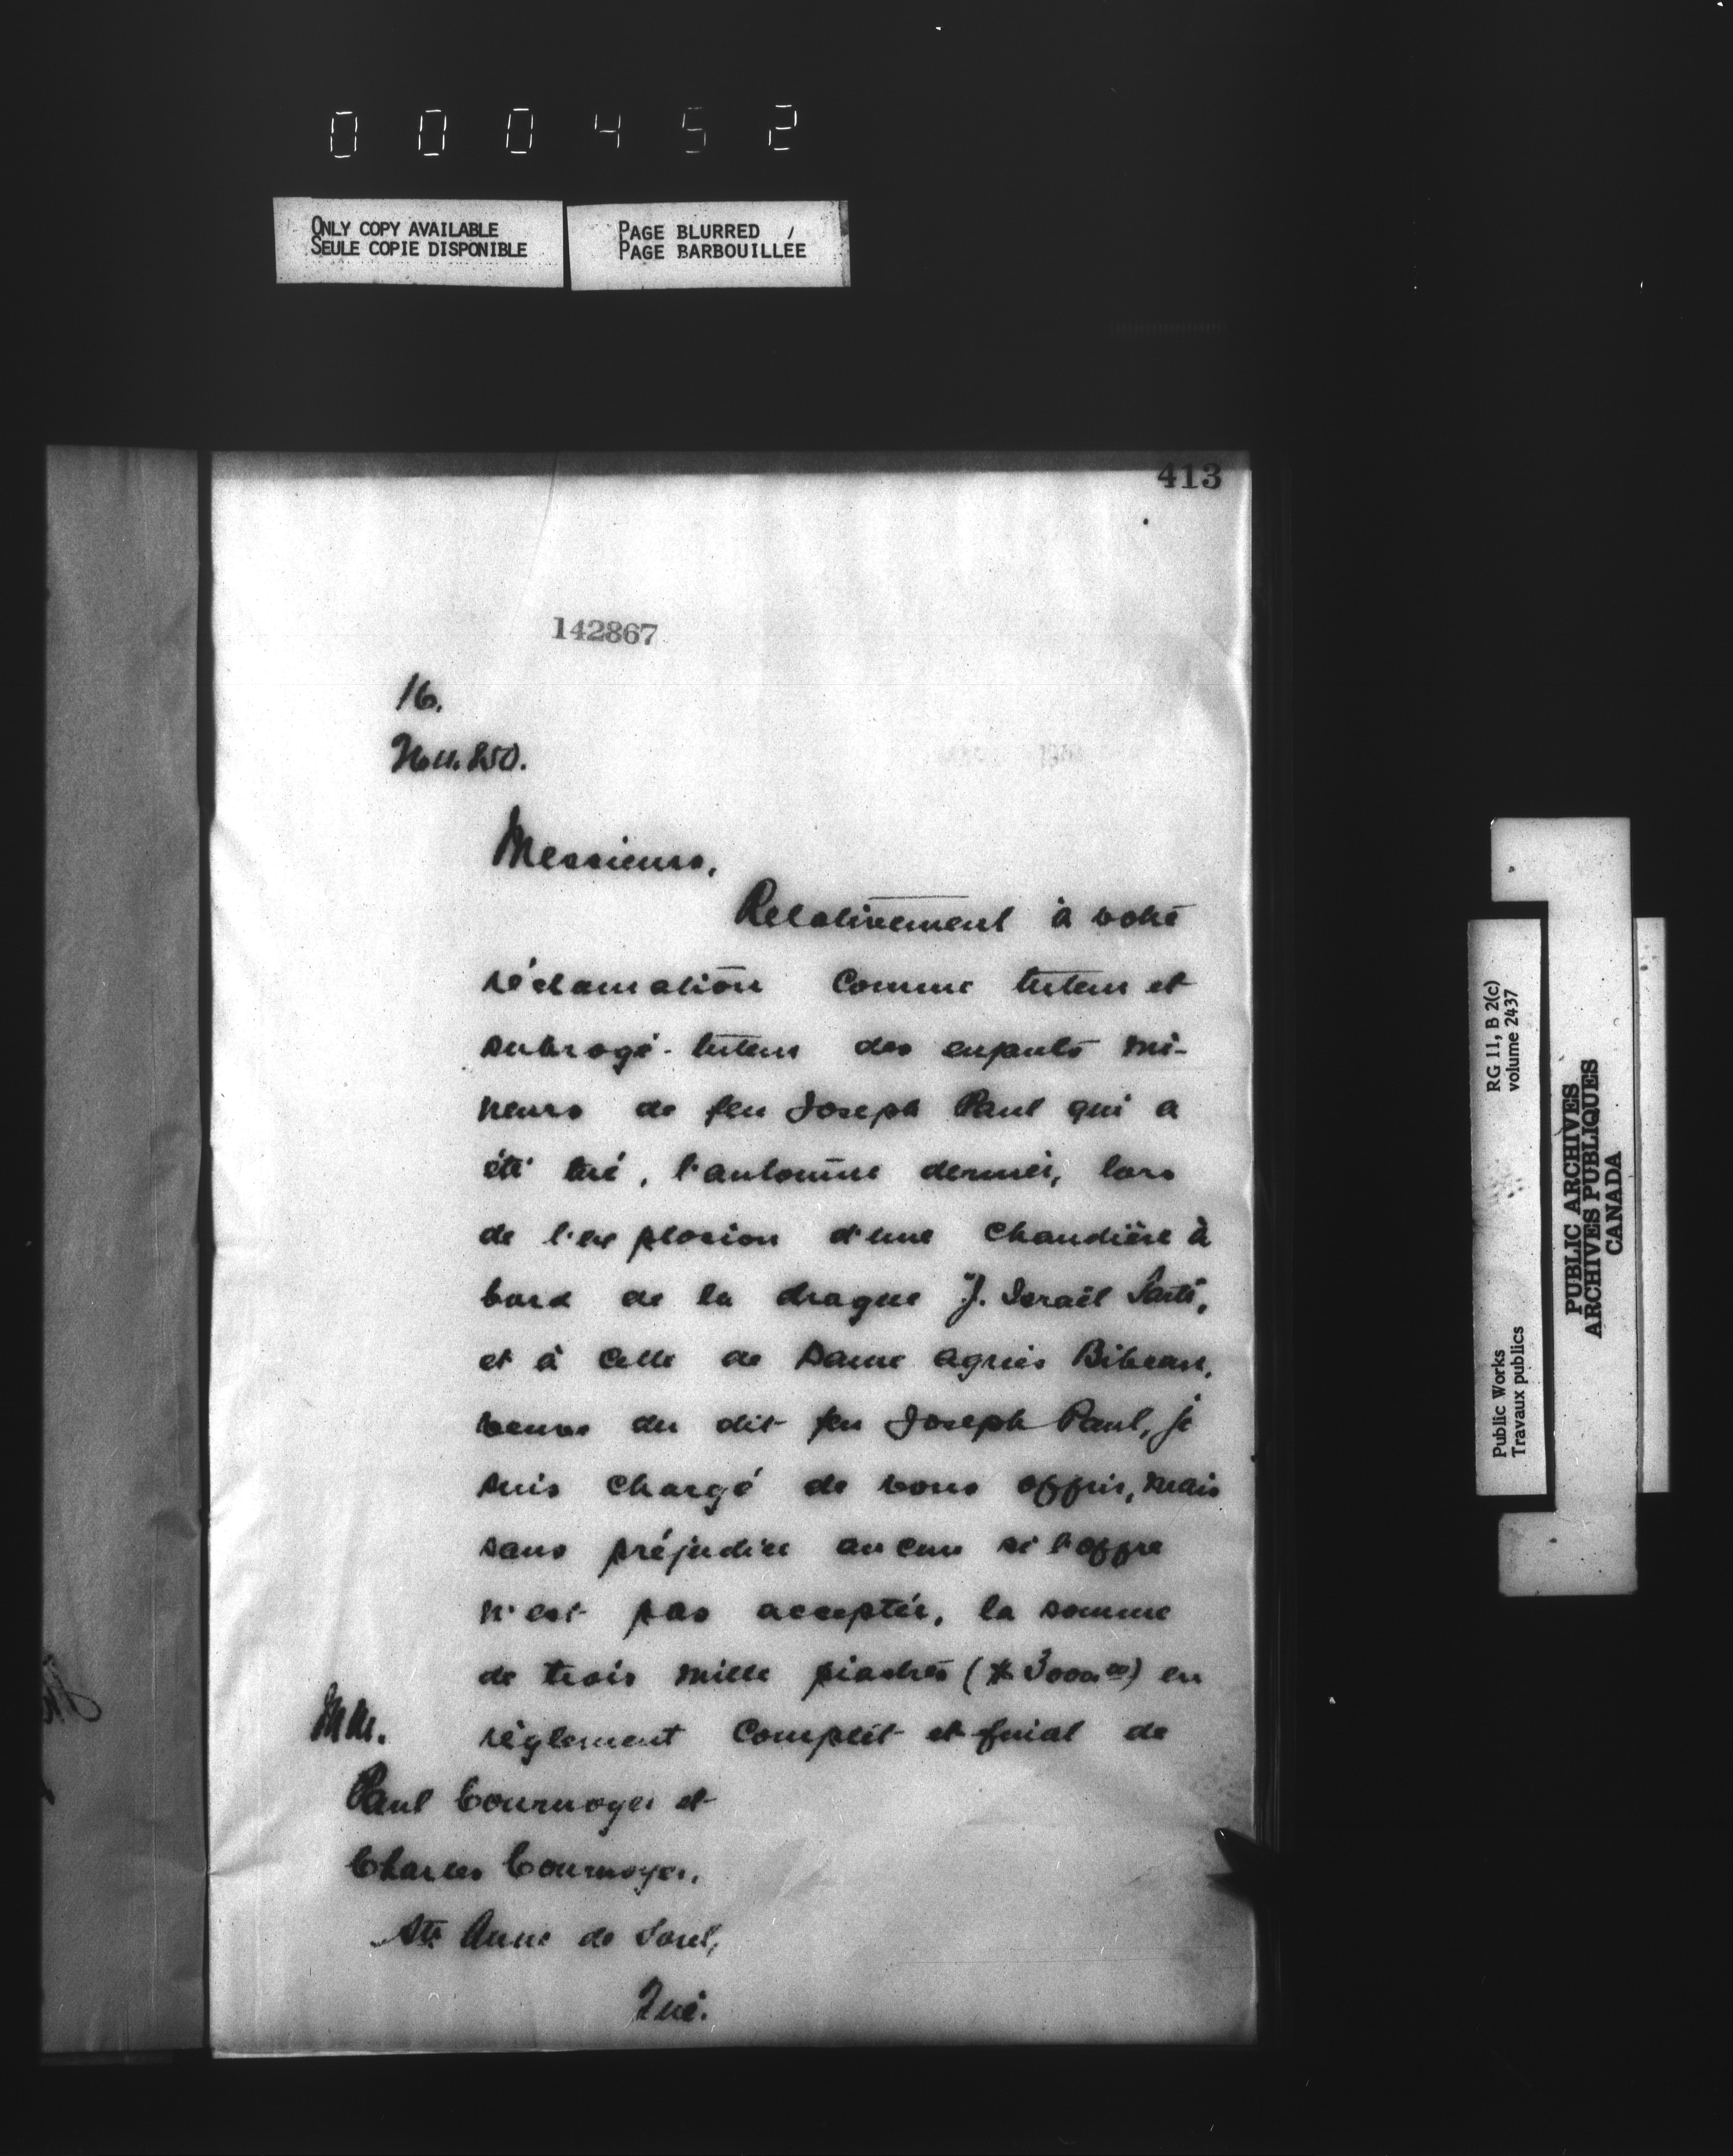 000452
ONLY COPY AVAILABLE
SEULE COPIE DISPONIBLE
PAGE BLURRED /
PAGE BARBOUILLEE
413
142867
16.
Messieurs,
Relativement à votre
réclamation comme tuteur et
subrogé-tuteur des enfants mi-
neurs de feu Joseph Paul qui a
été tué, l'automne dernier, lors
de l'explosion d'une chaudière à
bord de la drague "J. Israël Tarte",
et à celle de Dame Agnès Bibeau,
veuve du dit feu Joseph Paul, je
suis chargé de vous offrir, mais
sans préjudice aucun si l'offre
n'est pas acceptée, la somme
de trois mille piastres ($3000.00) en
règlement complèt et final de
MM.
Paul Cournoyer et
Charles Cournoyer,
Ste Anne de Sorel,
Qué.
Public Works
Travaux publics
RG 11, B 2(c)
volume 2437
PUBLIC ARCHIVES
ARCHIVES PUBLIQUES
CANADA